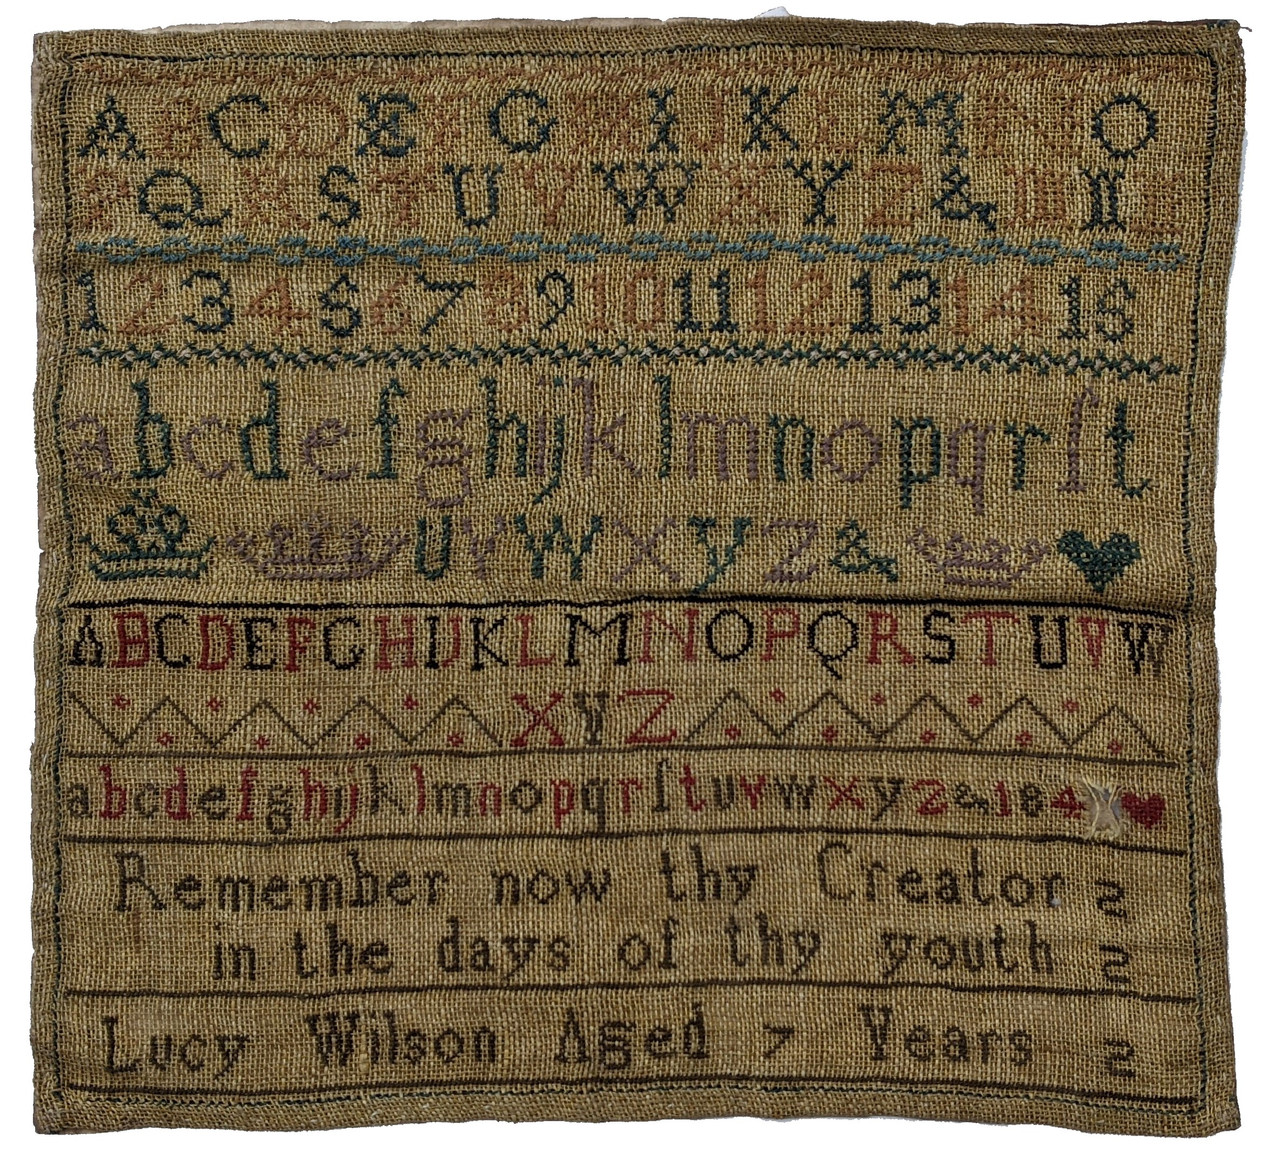 A B C D E F G H I J K L M N O
P Q R S T U V W X Y Z &
1 2 3 4 5 6 7 8 9 10 11 12 13 14 15
a b c d e f g h i j k l m n o p q r ſ t
u v w x y z &
A B C D E F G H I J K L M N O P Q R S T U V W
X Y Z
a b c d e f g h i j k l m n o p q r ſ t u v w x y z & 184
Remember now thy Creator
in the days of thy youth
Lucy Wilson Aged 7 Years